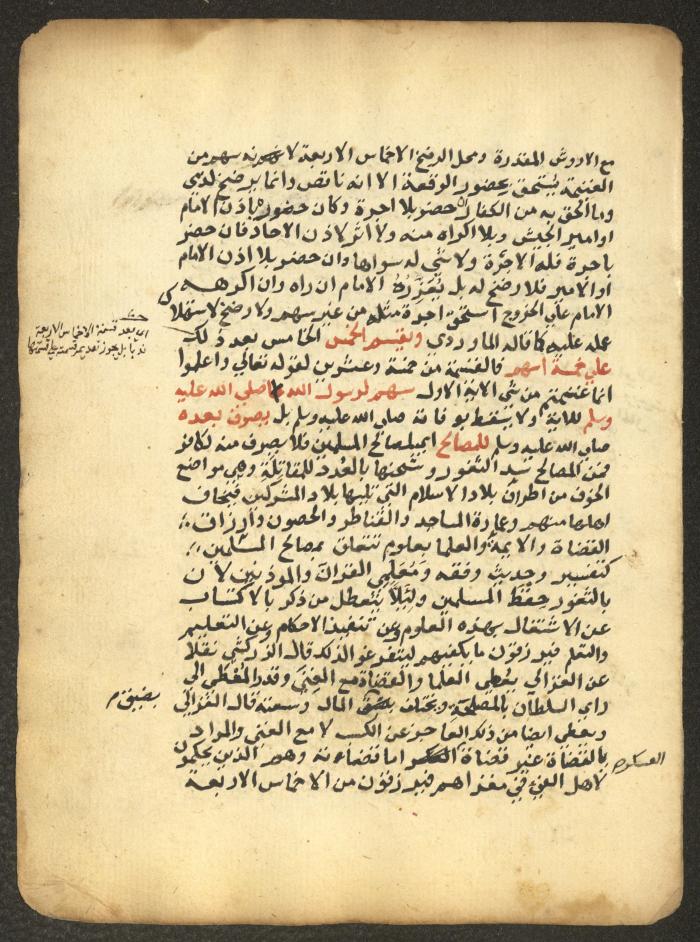 مع الاروش المقدرة ومحل الرضخ الاخماس الاربعة لانه سهم من
الغنيمة يستحق بحضور الوقعة الا انه ناقص وانما يرضخ لذمي
وما الحق به من الكفار حضر بلا اجرة وكان حضوره باذن الامام
او امير الجيش وبلا اكراه منه ولا اثر لاذن الاحاد فان حضر
باجرة فله الاجرة ولا شي له سواها وان حضر بلا اذن الامام
او الامير فلا رضخ له بل يعزره الامام ان راه وان اكرهه
الامام علي الخروج استحق اجرة مثله من غير سهم ولا رضخ لاستهلاك
عمله عليه كما قاله الماوردي ويقسم الخمس الخامس بعد ذلك
علي خمسة اسهم فالقسمة من خمسة وعشرين لقوله تعالي واعلموا
انما غنمتم من شي الاية الاول سهم لرسول الله صلي الله عليه
وسلم للاية ولا يسقط بوفاته صلي الله عليه وسلم بل يصرف بعده
صلي الله عليه وسلم للمصالح اي لمصالح المسلمين فلا يصرف منه لكافر
فمن المصالح سد الثغور وشحنها بالعدد للمقاتلة وهي مواضع
الخوف من اطراف بلاد الاسلام التي تليها بلاد المشركين فيخاف
اهلها منهم وعمارة المساجد والقناطر والحصون وارزاق
القضاة والايمة والعلما بعلوم تتعلق بمصالح المسلمين
كتفسير وحديث وفقه ومعلمي القران والموذنين لان
بالثغور حفظ المسلمين وليلا يتعطل من ذكر بالاكتساب
عن الاشتغال بهذه العلوم وعن تنفيذ الاحكام وعن التعليم
والتعلم فيرزقون ما يكفيهم ليتفرغوا لذلك قال الزركشي نقلا
عن الغزالي يعطي العلما والقضاة مع الغني وقدر المعطي الي
راي السلطان بالمصلحة ويختلف بضيق المال وسعته قال الغزالي
ويعطي ايضا من ذلك العاجز عن الكسب لا مع الغني والمراد
بالقضاة غير قضاة العسكر اما قضاته وهم الذين يحكمون
لاهل الفيء في مغزاهم فيرزقون من الاخماس الاربعة
اي بعد قسمة الاخماس الاربعة
ندبا بل يجوز تقديم قسمته علي قسمتها
بضيق م
العسكر م